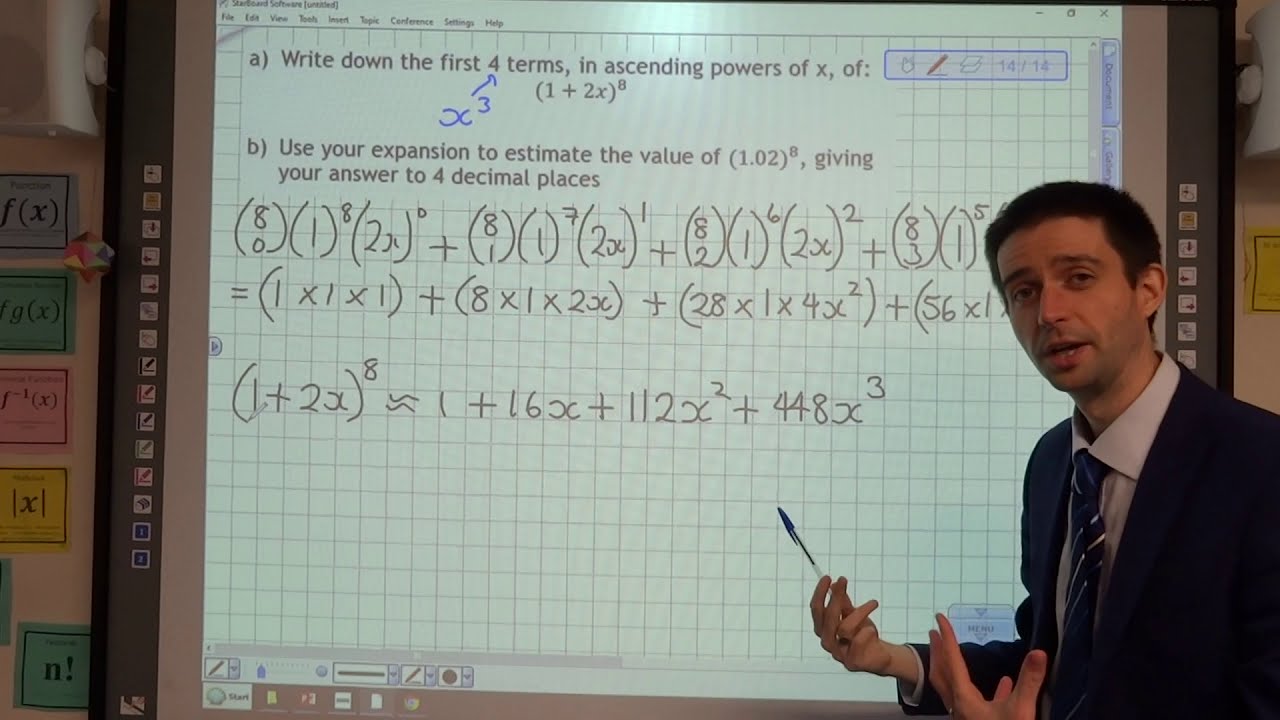 StarBoard Software [untitled]
File Edit View Tools Insert Topic Conference Settings Help
a) Write down the first 4 terms, in ascending powers of x, of:
(1 + 2x)⁸
x³
14 / 14
Document
Gallery
b) Use your expansion to estimate the value of (1.02)⁸, giving
your answer to 4 decimal places
(8 0)(1)⁸(2x)⁰ + (8 1)(1)⁷(2x)¹ + (8 2)(1)⁶(2x)² + (8 3)(1)⁵
= (1 × 1 × 1) + (8 × 1 × 2x) + (28 × 1 × 4x²) + (56 × 1 ×
(1 + 2x)⁸ ≈ 1 + 16x + 112x² + 448x³
MENU
Start
Function
f(x)
fg(x)
f⁻¹(x)
|x|
n!
1
2